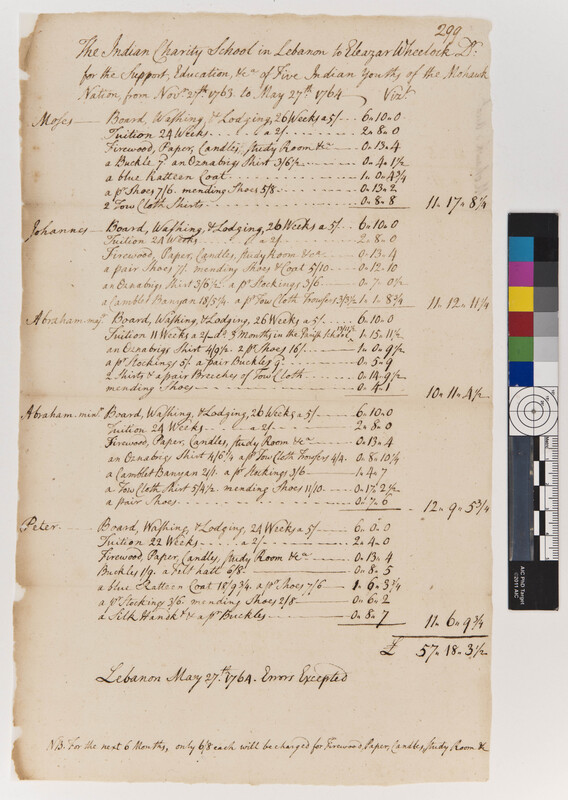 299
The Indian Charity School in Lebanon to Eleazar Wheelock Dr.
for the Support, Education, &c of Five Indian Youths of the Mohawk
Nation, from Novr. 27th. 1763. to May 27th. 1764 Vizt.
Moses Board, Washing, & Lodging, 26 Weeks a 5/ 6 „ 10 „ 0
Tuition 24 Weeks a 2/. 2 „ 8 „ 0
Firewood, Paper, Candles, study Room &c 0 „ 13 „ 4
a Buckle 9d. an Oznabrigs Shirt 3/6½ 0 „ 4 „ 1½
a blue Ratteen Coat 1 „ 0 „ 4¾
a pr. Shoes 7/6. mending Shoes 5/8 0 „ 13 „ 2
2 Tow Cloth Shirts 0 „ 8 „ 8 11 „ 17 „ 8¼
Johannes Board, Washing, & Lodging, 26 Weeks a 5/. 6 „ 10 „ 0
Tuition 24 Weeks a 2/. 2 „ 8 „ 0
Firewood, Paper, Candles, study Room &c 0 „ 13 „ 4
a pair Shoes 7/. mending Shoes & Coat 5/10 0 „ 12 „ 10
an Oznabrigs Shirt 3/6½. a pr. Stockings 3/6 0 „ 7 „ 0½
a Camblet Banyan 18/5¼. a pr. Tow Cloth Trowsers 3/3½ 1 „ 1 „ 8¾ 11 „ 12 „ 11¼
Abraham maj. Board, Washing, & Lodging, 26 Weeks a 5/ 6 „ 10 „ 0
Tuition 11 Weeks a 2/. do. 3 Months in the Parish School 1 „ 15 „ 11½
an Oznabrigs Shirt 4/9½. 2 pr. Shoes 16/ 1 „ 0 „ 9½
a pr. Stockings 5/. a pair Buckles 9d. 0 „ 5 „ 9
2 Shirts & a pair Breeches of Tow Cloth 0 „ 14 „ 9½
mending Shoes 0 „ 4 „ 1 10 „ 11 „ 4½
Abraham min. Board, Washing, & Lodging, 26 Weeks a 5/ 6 „ 10 „ 0
Tuition 24 Weeks a 2/. 2 „ 8 „ 0
Firewood, Paper, Candles, study Room &c 0 „ 13 „ 4
an Oznabrigs Shirt 4/6¼ a pr. Tow Cloth Trowsers 4/4 0 „ 8 „ 10¼
a Camblet Banyan 21/1. a pr. Stockings 3/6 1 „ 4 „ 7
a Tow Cloth Shirt 5/4½. mending Shoes 11/10 0 „ 17 „ 2½
a pair Shoes 0 „ 7 „ 6 12 „ 9 „ 5¾
Peter Board, Washing, & Lodging, 24 Weeks a 5/ 6 „ 0 „ 0
Tuition 22 Weeks a 2/ 2 „ 4 „ 0
Firewood, Paper, Candles, study Room &c 0 „ 13 „ 4
Buckles 1/9. a Felt hatt 6/8 0 „ 8 „ 5
a blue Ratteen Coat 18/9¾. a pr. Shoes 7/6 1 „ 6 „ 3¾
a pr. Stockings 3/6. mending Shoes 2/8 0 „ 6 „ 2
a Silk Handkf. & a pr. Buckles 0 „ 8 „ 7 11 „ 6 „ 9¾
£ 57 „ 18 „ 3½
Lebanon May 27th. 1764. Errors Excepted
NB. For the next 6 Months, only 6/8 each will be charged for Firewood, Paper, Candles, Study Room &c
AIC PhD Target
©2011 AIC